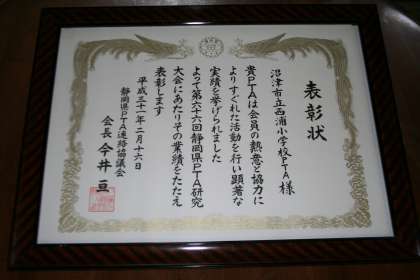 表彰状
沼津市立西浦小学校PTA 様
貴PTAは会員の熱意と協力に
よりすぐれた活動を行い顕著な
実績を挙げられました
よって第六十六回静岡県PTA研究
大会にあたりその業績をたたえ
表彰します
平成三十一年二月十六日
静岡県PTA連絡協議会
会長 今井 亘